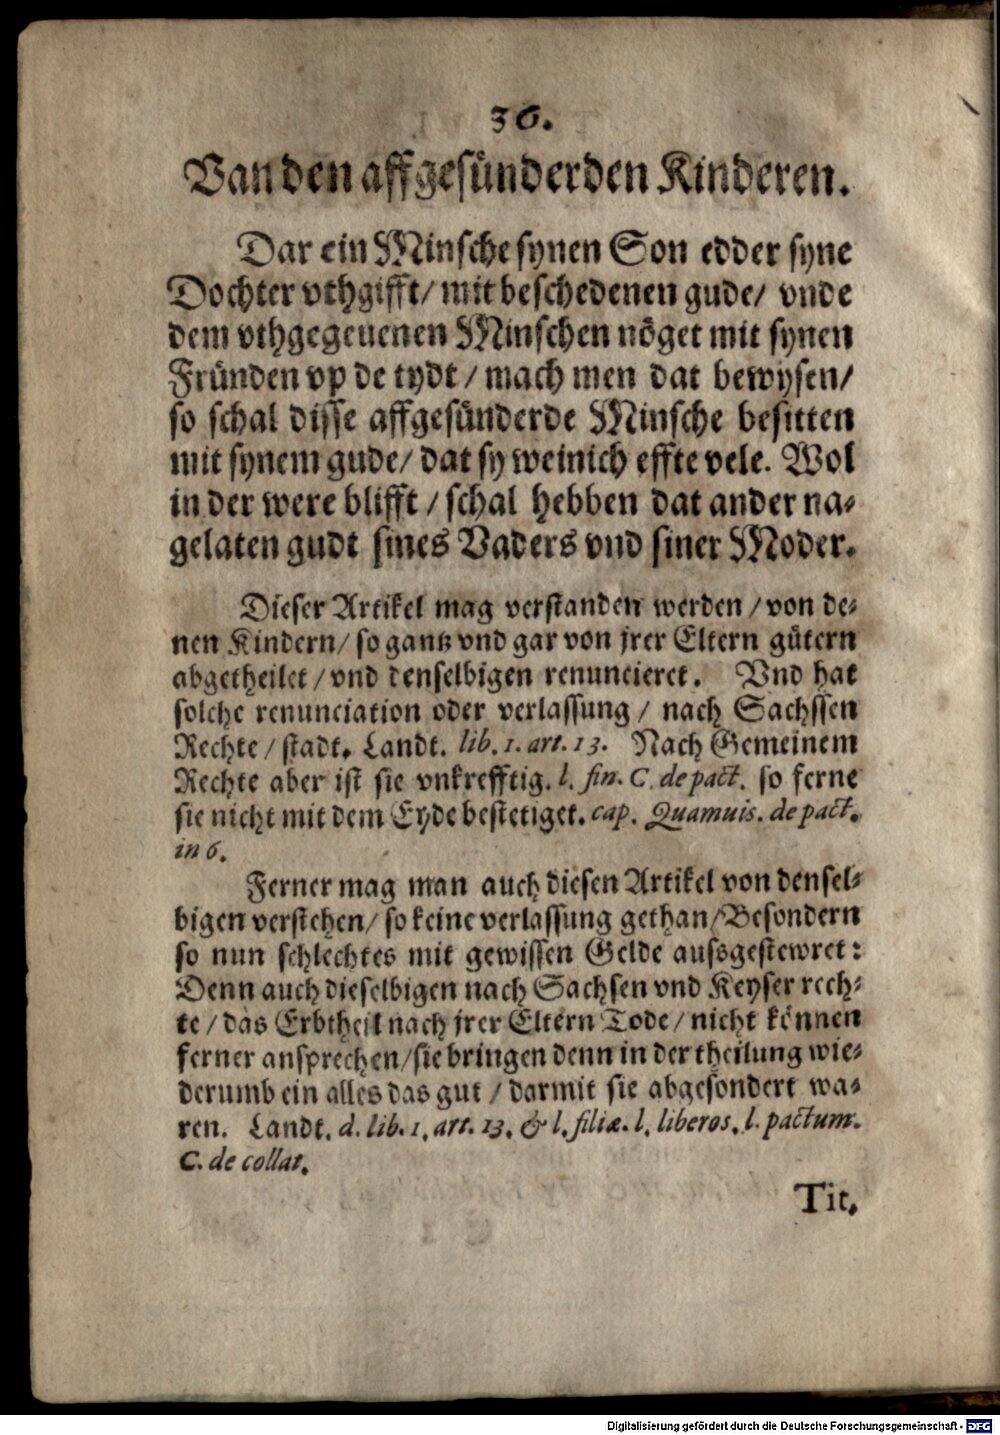 36.
Van den affgesünderden Kinderen.
Dar ein Minsche synen Son edder syne
Dochter vthgifft/ mit beschedenen gude/ vnde
dem vthgegeuenen Minschen nöget mit synen
Fründen vp de tydt / mach men dat bewysen/
so schal disse affgesünderde Minsche besitten
mit synem gude/ dat sy weinich effte vele. Wol
in der were blifft / schal hebben dat ander na-
gelaten gudt sines Vaders vnd siner Moder.
Dieser Artikel mag verstanden werden / von de-
nen Kindern/ so gantz vnd gar von jrer Eltern gütern
abgetheilet / vnd denselbigen renuncieret. Vnd hat
solche renunciation oder verlassung / nach Sachssen
Rechte / stadt. Landt. lib. 1. art. 13. Nach Gemeinem
Rechte aber ist sie vnkrefftig. l. fin. C. de pact. so ferne
sie nicht mit dem Eyde bestetiget. cap. Quamuis. de pact.
in 6.
Ferner mag man auch diesen Artikel von densel-
bigen verstehen/ so keine verlassung gethan/ Besondern
so nun schlechtes mit gewissen Gelde aufsgestewret:
Denn auch dieselbigen nach Sachsen vnd Keyser rech-
te / das Erbtheil nach jrer Eltern Tode / nicht können
ferner ansprechen/ sie bringen denn in der theilung wie-
derumb ein alles das gut / darmit sie abgesondert wa-
ren. Landt. d. lib. 1. art. 13. & l. filiæ. l. liberos. l. pactum.
C. de collat.
Tit.
Digitalisierung gefördert durch die Deutsche Forschungsgemeinschaft - DFG